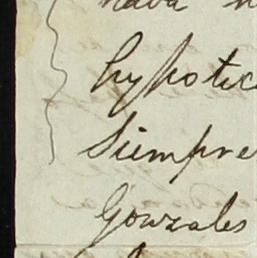 hypotec
Siempre
Gonzales